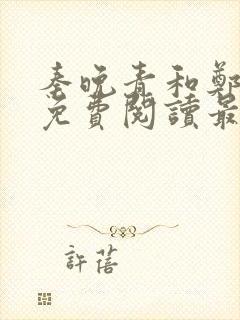 秦晚青和鄭
免費閱讀最
許蓓